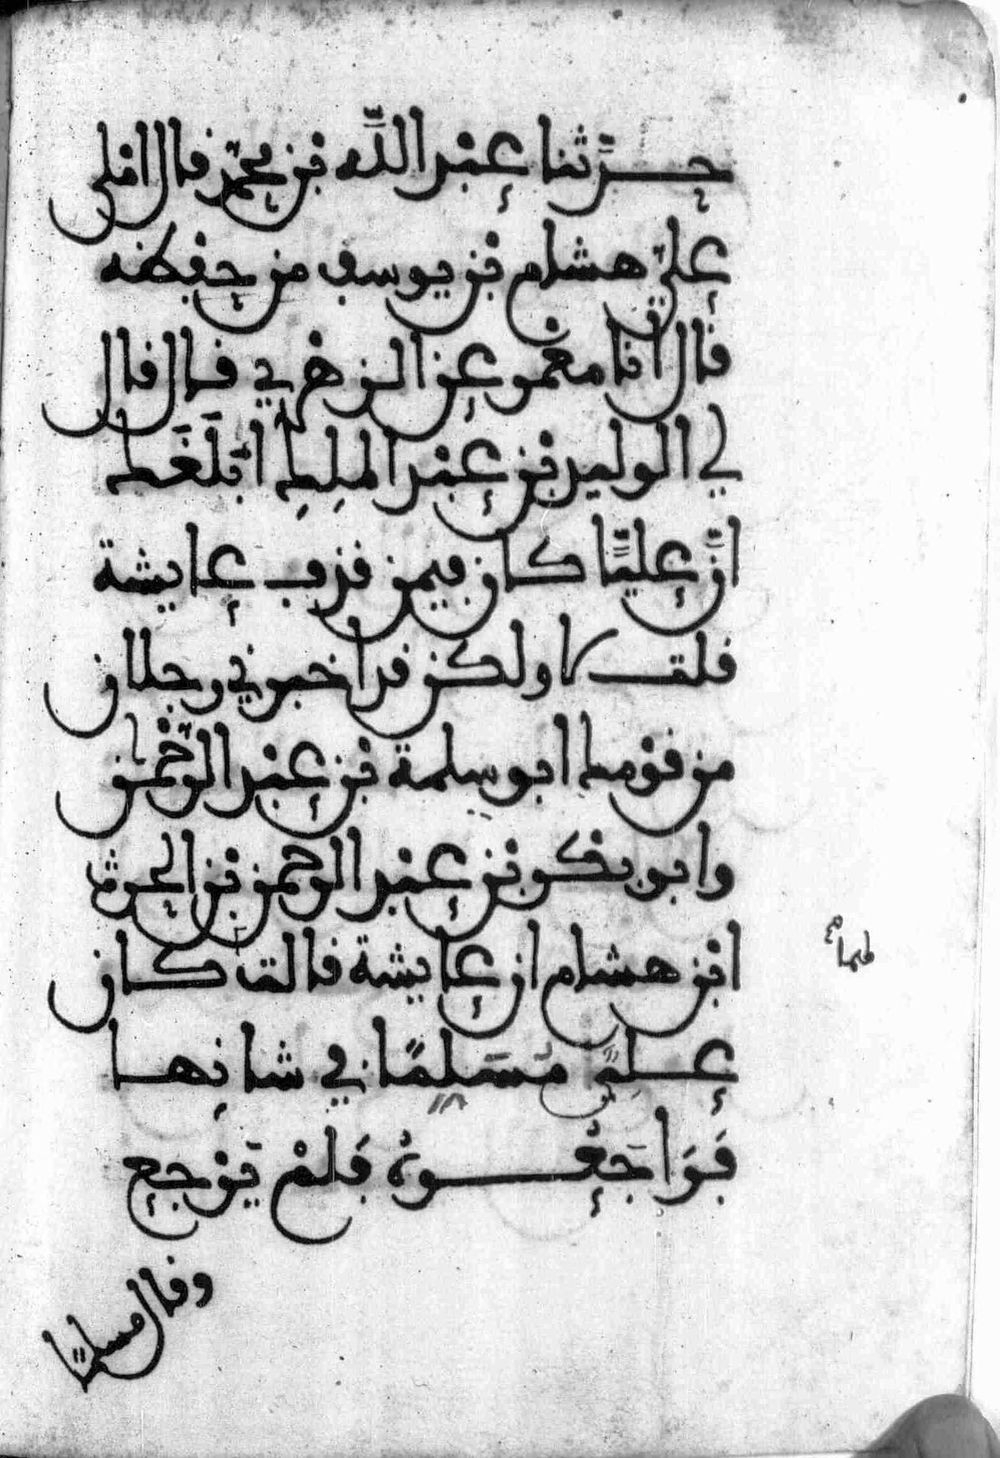 حدثنا عبد الله بن محمد قال املى
علي هشام بن يوسف من حفظه
قال انا معمر عن الزهري قال قال
لي الوليد بن عبد الملك ابلغك
ان عليا كان فيمن قذف عايشة
قلت لا ولكن قد اخبرني رجلان
من قومك ابو سلمة بن عبد الرحمن
وابو بكر بن عبد الرحمن بن الحرث
ابن هشام ان عايشة قالت كان
علي مُسَلِّمًا في شانها
فَرَاجَعُوهُ فَلَمْ يَرْجِع
وقال مسلما
لهما